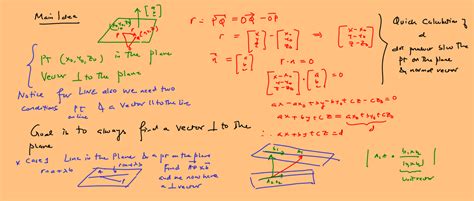 Main Idea
PT (x₀, y₀, z₀) is in the plane
Vector ⊥ to the plane
Notice for LINE also we need two
conditions PT & a vector || to the line
on line
Goal is to always find a vector ⊥ to the
plane
x Case 1 Line in the Plane & a pt on the plane
r = a + λb
Find
and we now have
a ⊥ vector
r = PQ = OQ - OP
r = [x y z] - [x₀ y₀ z₀] = [x-x₀ y-y₀ z-z₀]
r · n = 0
[x-x₀ y-y₀ z-z₀] · [a b c] = 0
ax - ax₀ + by - by₀ + cz - cz₀ = 0
ax + by + cz = ax₀ + by₀ + cz₀
d
∴ ax + by + cz = d
Quick Calculation of
d
dot product b/w the
pt on the plane
& normal vector
unit vector